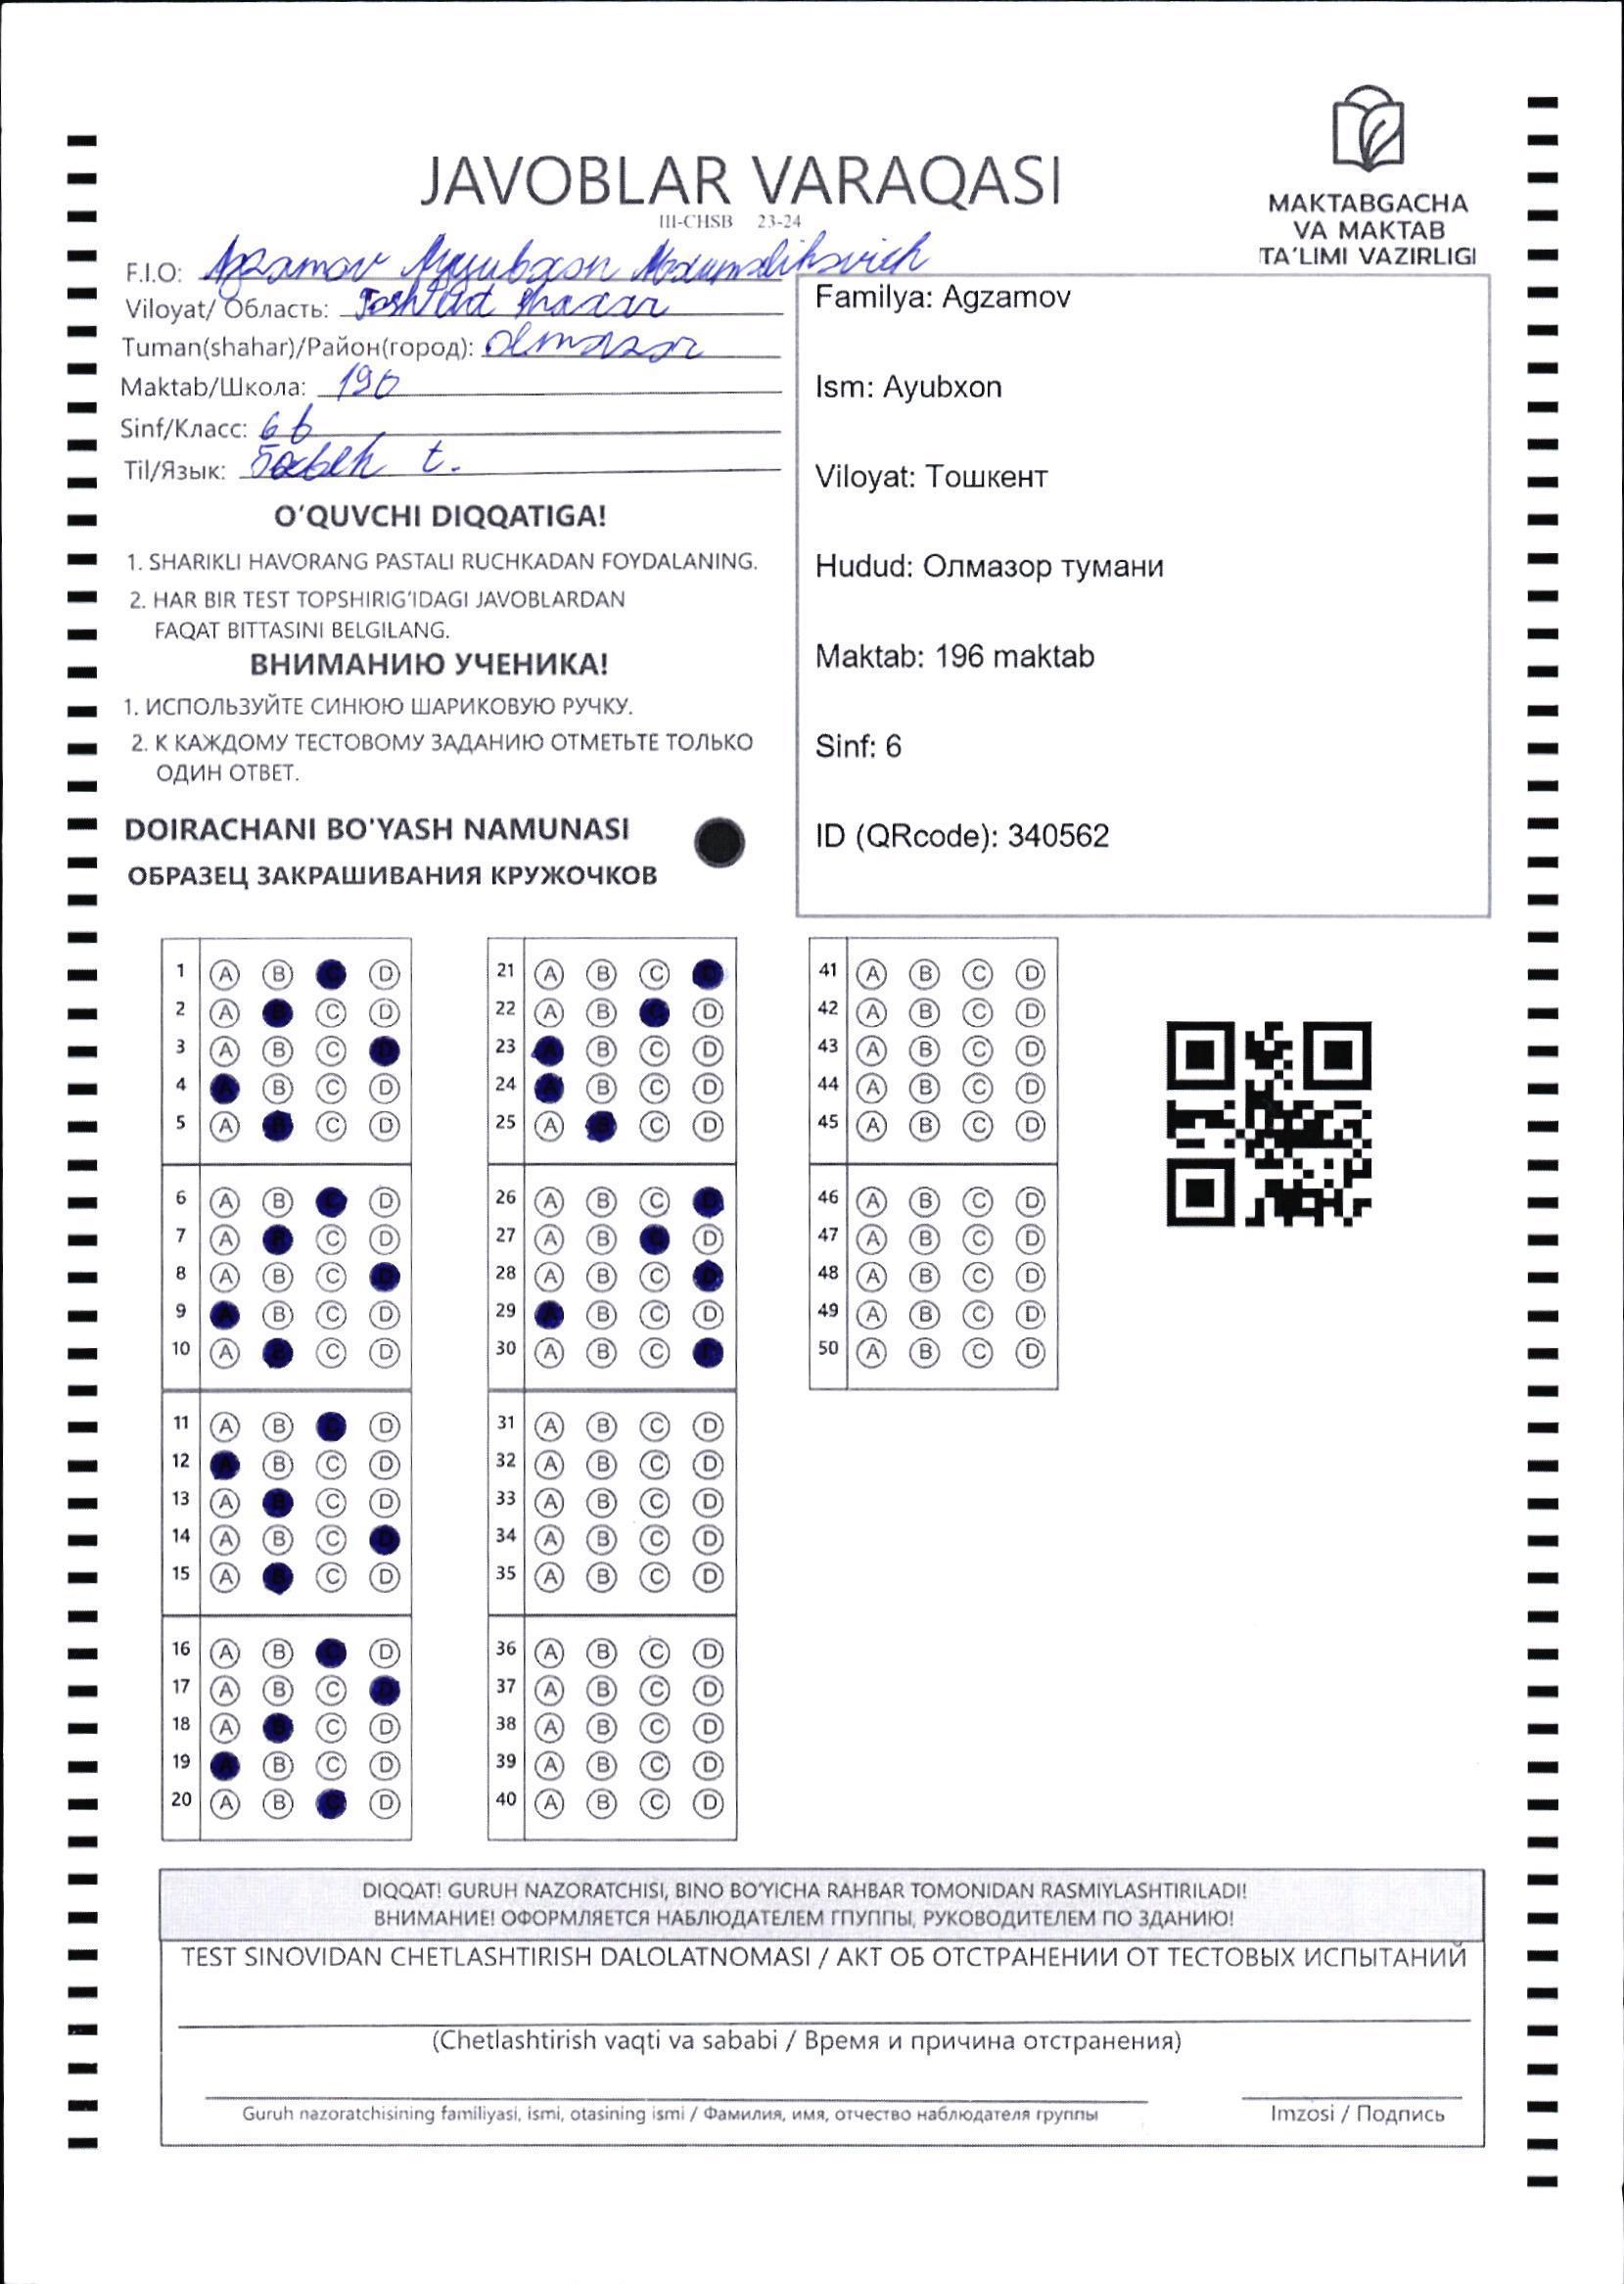 JAVOBLAR VARAQASI
III-CHSB 23-24
MAKTABGACHA
VA MAKTAB
TA'LIMI VAZIRLIGI
F.I.O: Agzamov Ayyubxon
Viloyat/ Область:
Tuman(shahar)/Район(город): Olmazor
Maktab/Школа: 196
Sinf/Класс: 6 b
Til/Язык: t.
O'QUVCHI DIQQATIGA!
1. SHARIKLI HAVORANG PASTALI RUCHKADAN FOYDALANING.
2. HAR BIR TEST TOPSHIRIG'IDAGI JAVOBLARDAN
FAQAT BITTASINI BELGILANG.
ВНИМАНИЮ УЧЕНИКА!
1. ИСПОЛЬЗУЙТЕ СИНЮЮ ШАРИКОВУЮ РУЧКУ.
2. К КАЖДОМУ ТЕСТОВОМУ ЗАДАНИЮ ОТМЕТЬТЕ ТОЛЬКО
ОДИН ОТВЕТ.
DOIRACHANI BO'YASH NAMUNASI
ОБРАЗЕЦ ЗАКРАШИВАНИЯ КРУЖОЧКОВ
Familya: Agzamov
Ism: Ayubxon
Viloyat: Тошкент
Hudud: Олмазор тумани
Maktab: 196 maktab
Sinf: 6
ID (QRcode): 340562
1 A B C D
2 A B C D
3 A B C D
4 A B C D
5 A B C D
6 A B C D
7 A B C D
8 A B C D
9 A B C D
10 A B C D
11 A B C D
12 A B C D
13 A B C D
14 A B C D
15 A B C D
16 A B C D
17 A B C D
18 A B C D
19 A B C D
20 A B C D
21 A B C D
22 A B C D
23 A B C D
24 A B C D
25 A B C D
26 A B C D
27 A B C D
28 A B C D
29 A B C D
30 A B C D
31 A B C D
32 A B C D
33 A B C D
34 A B C D
35 A B C D
36 A B C D
37 A B C D
38 A B C D
39 A B C D
40 A B C D
41 A B C D
42 A B C D
43 A B C D
44 A B C D
45 A B C D
46 A B C D
47 A B C D
48 A B C D
49 A B C D
50 A B C D
DIQQAT! GURUH NAZORATCHISI, BINO BO'YICHA RAHBAR TOMONIDAN RASMIYLASHTIRILADI!
ВНИМАНИЕ! ОФОРМЛЯЕТСЯ НАБЛЮДАТЕЛЕМ ГПУППЫ, РУКОВОДИТЕЛЕМ ПО ЗДАНИЮ!
TEST SINOVIDAN CHETLASHTIRISH DALOLATNOMASI / АКТ ОБ ОТСТРАНЕНИИ ОТ ТЕСТОВЫХ ИСПЫТАНИЙ
(Chetlashtirish vaqti va sababi / Время и причина отстранения)
Guruh nazoratchisining familiyasi, ismi, otasining ismi / Фамилия, имя, отчество наблюдателя группы
Imzosi / Подпись